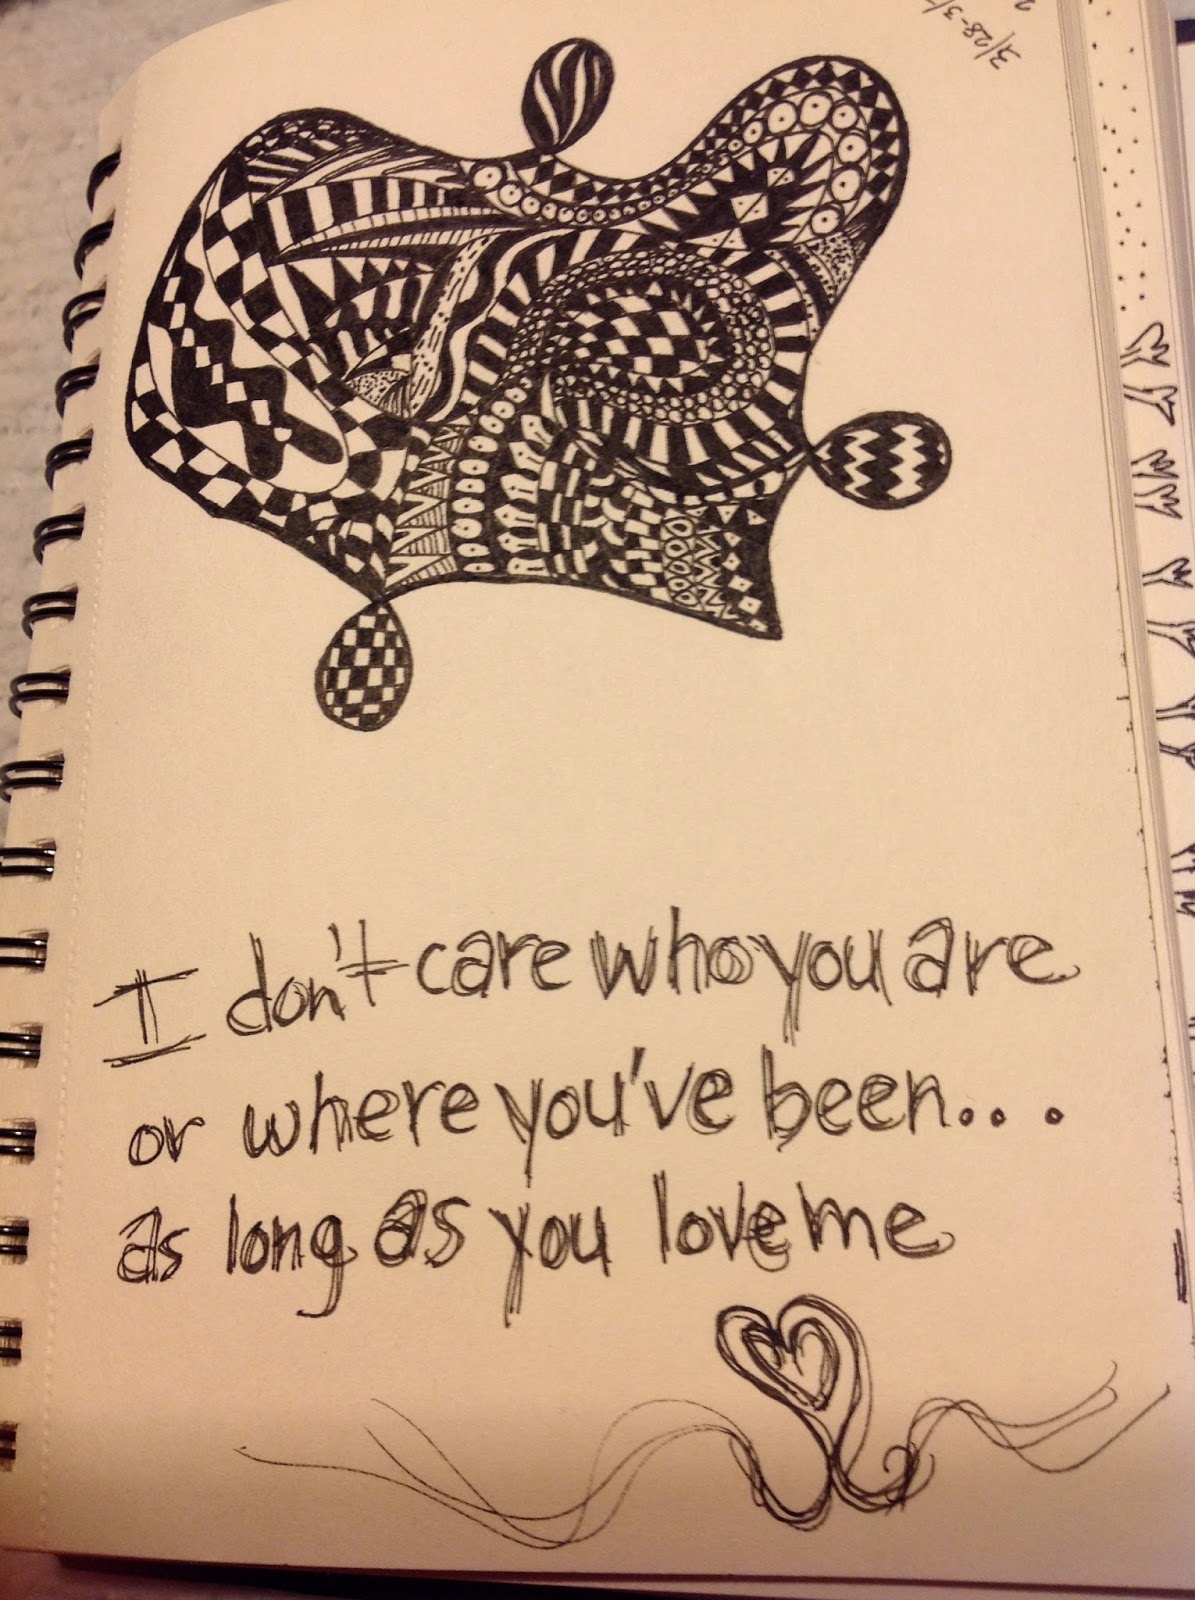 3/28-3/
I don't care who you are
or where you've been...
as long as you love me